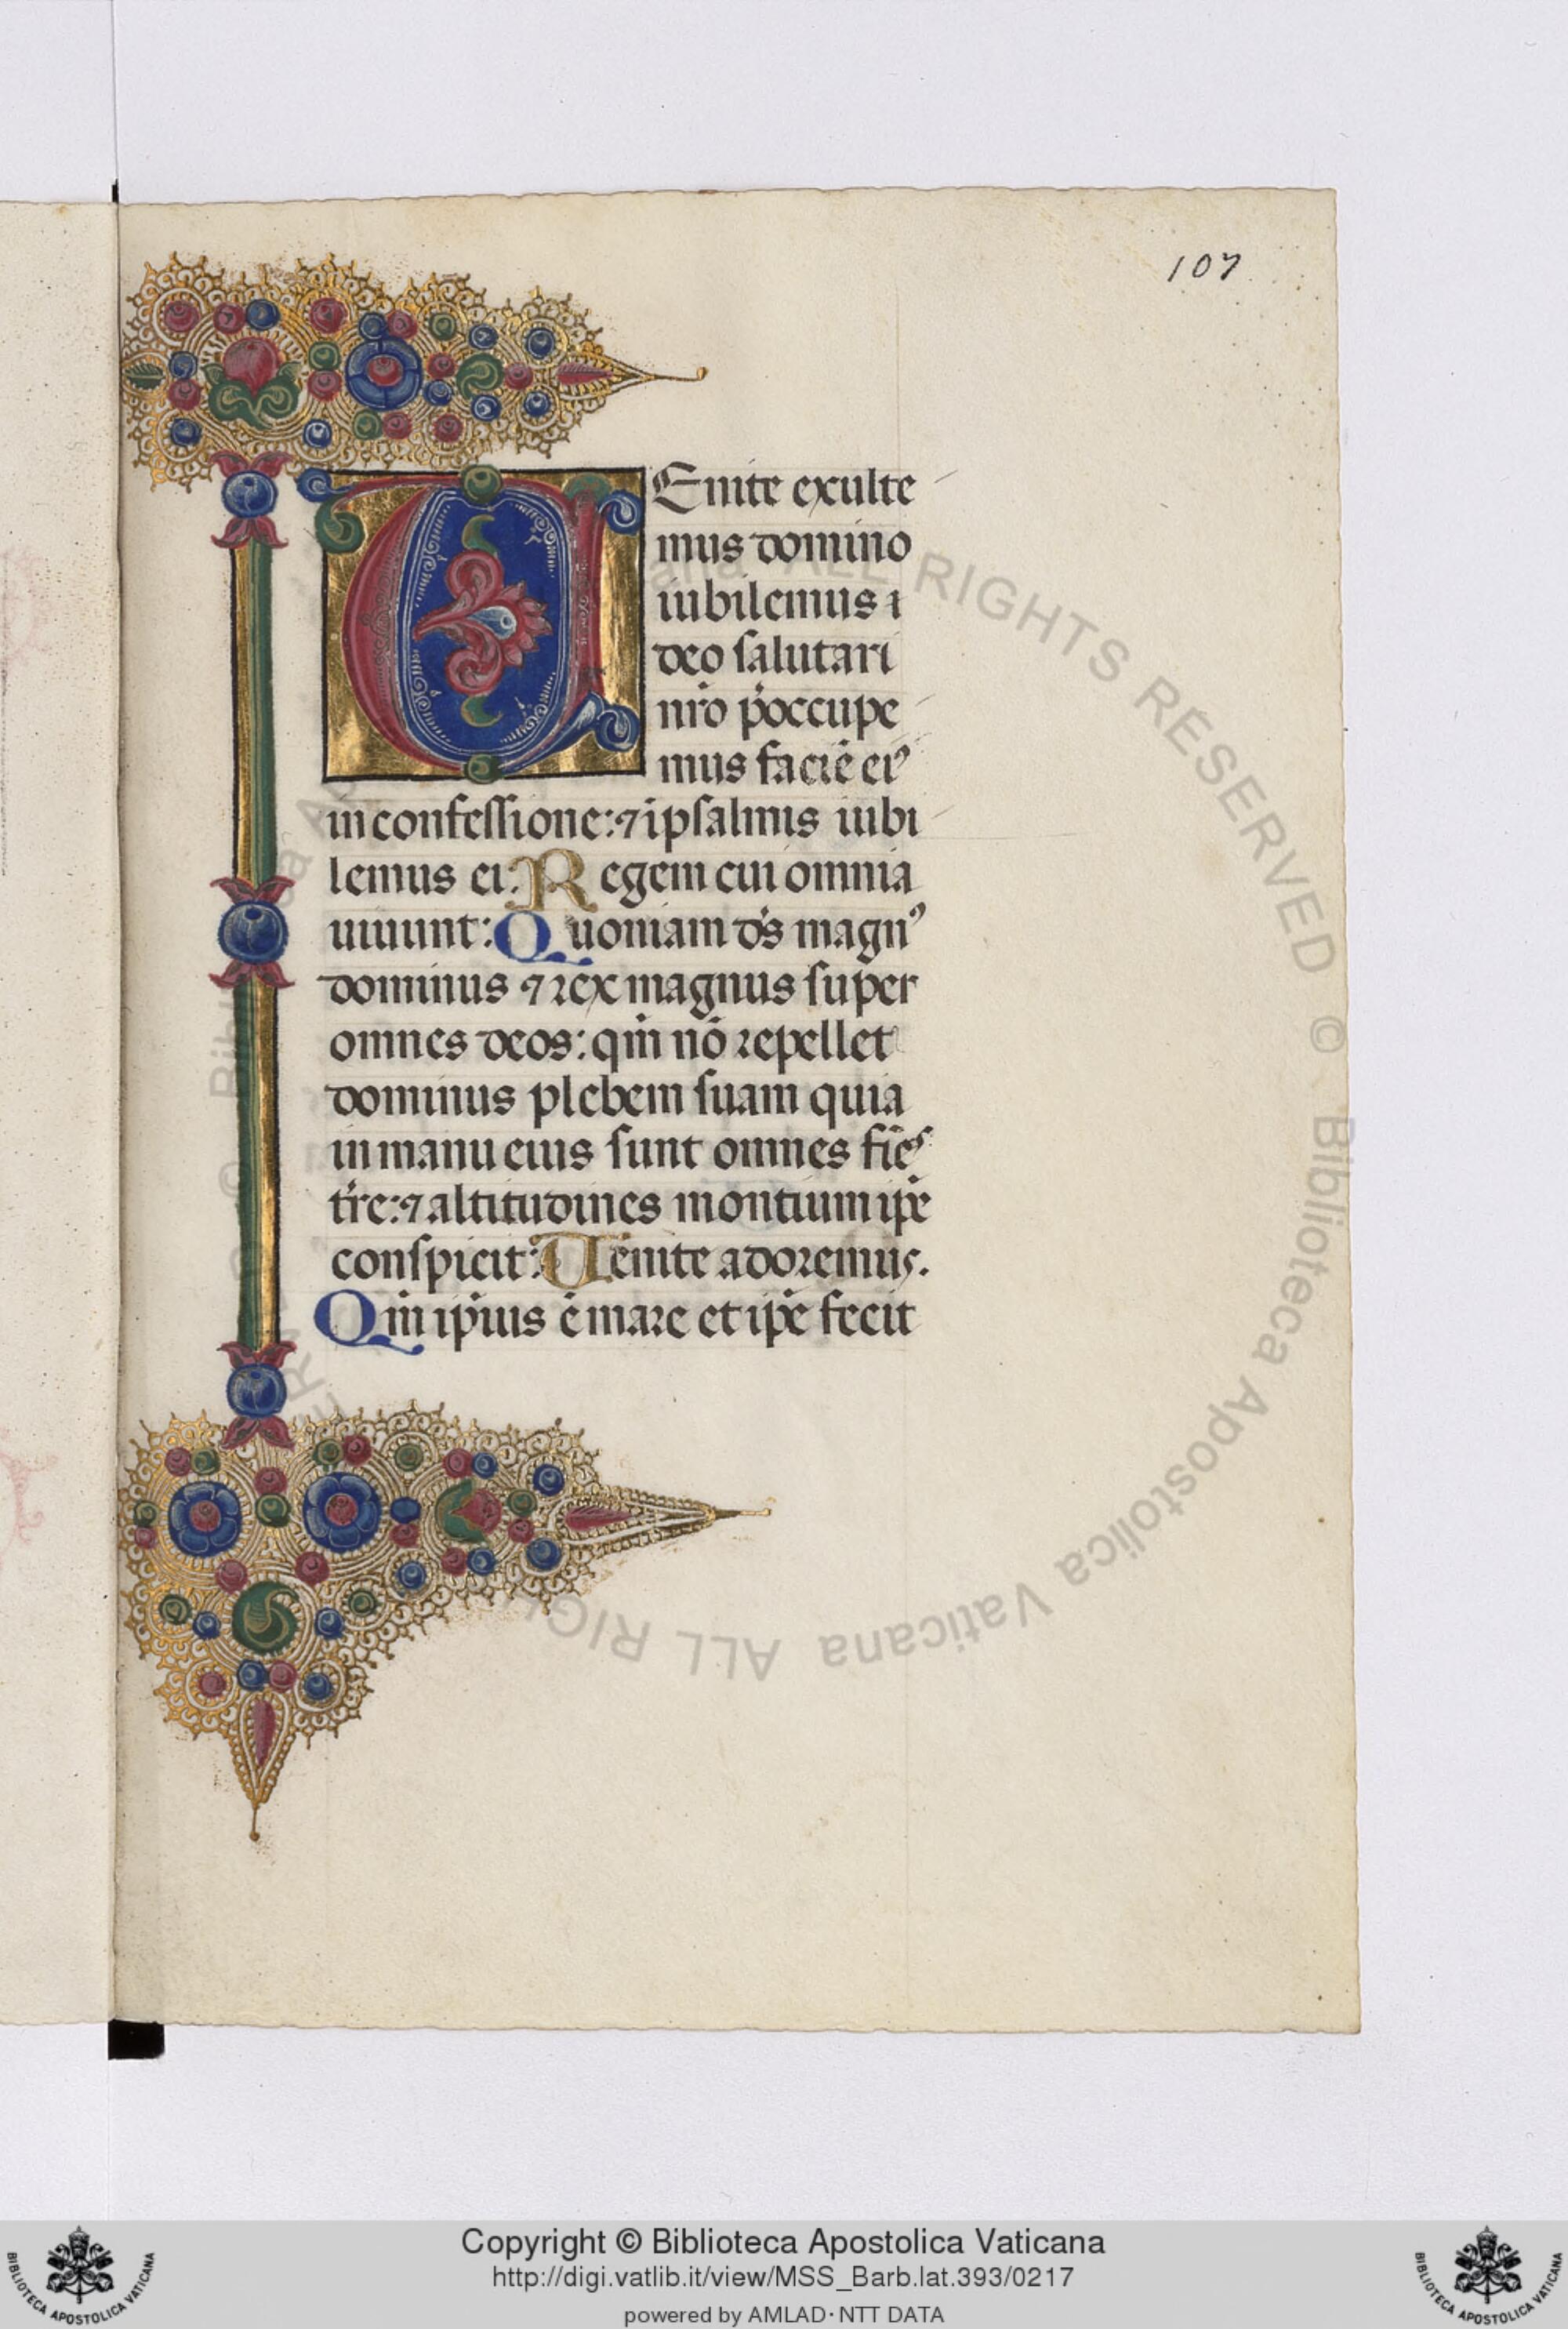 107
VEnite exulte
mus domino
iubilemus i
deo salutari
nr̄o p̄occupe
mus faciē eiꝰ
in confessione: ⁊ ī psalmis iubi
lemus ei: Regem cui omnia
uiuunt: Quoniam dʼs magnꝰ
dominus ⁊ rex magnus super
omnes deos: qm̄ nō repellet
dominus plebem suam quia
in manu eius sunt omnes fiēs
tr̄re: ⁊ altitudines montium ip̄e
conspicit: Uenite adoremus.
Qm̄ ip̄ius ē mare et ip̄e fecit
© Biblioteca Apostolica Vaticana ALL RIGHTS RESERVED
Copyright © Biblioteca Apostolica Vaticana
http://digi.vatlib.it/view/MSS_Barb.lat.393/0217
powered by AMLAD·NTT DATA
BIBLIOTECA APOSTOLICA VATICANA
BIBLIOTECA APOSTOLICA VATICANA